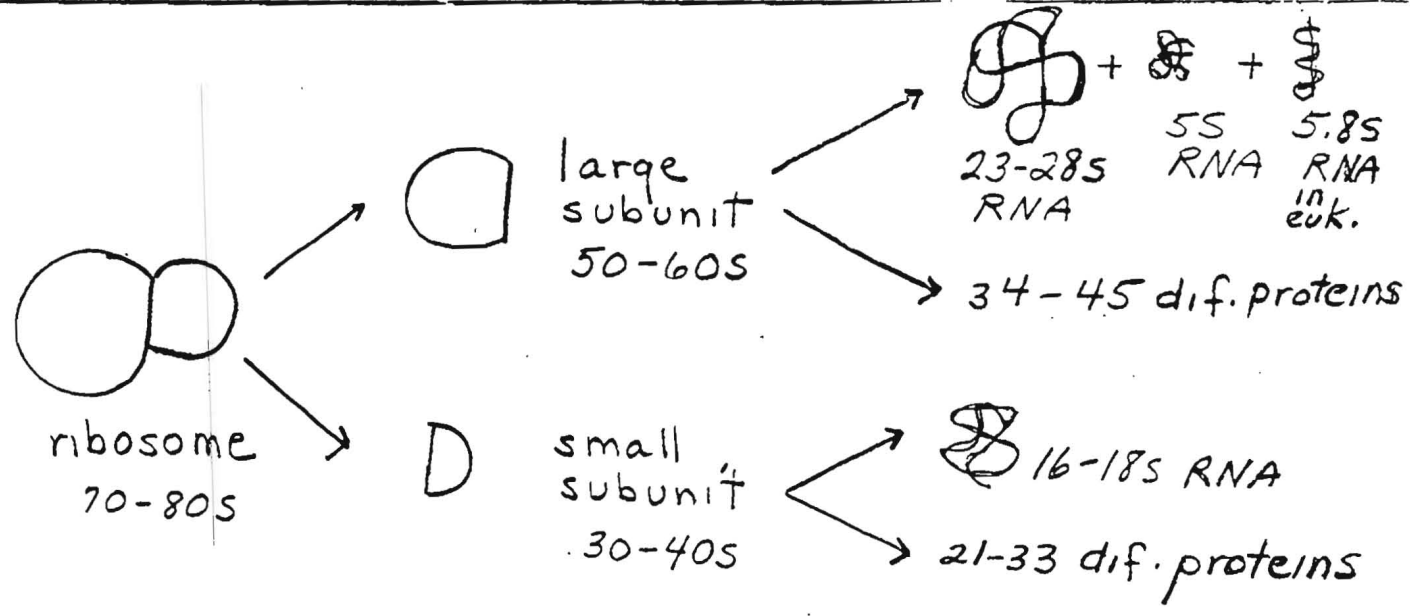 ribosome
70-80s
large
subunit
50-60s
small
subunit
30-40s
+ +
23-28s
RNA
5S
RNA
5.8s
RNA
in
euk.
34-45 dif. proteins
16-18s RNA
21-33 dif. proteins